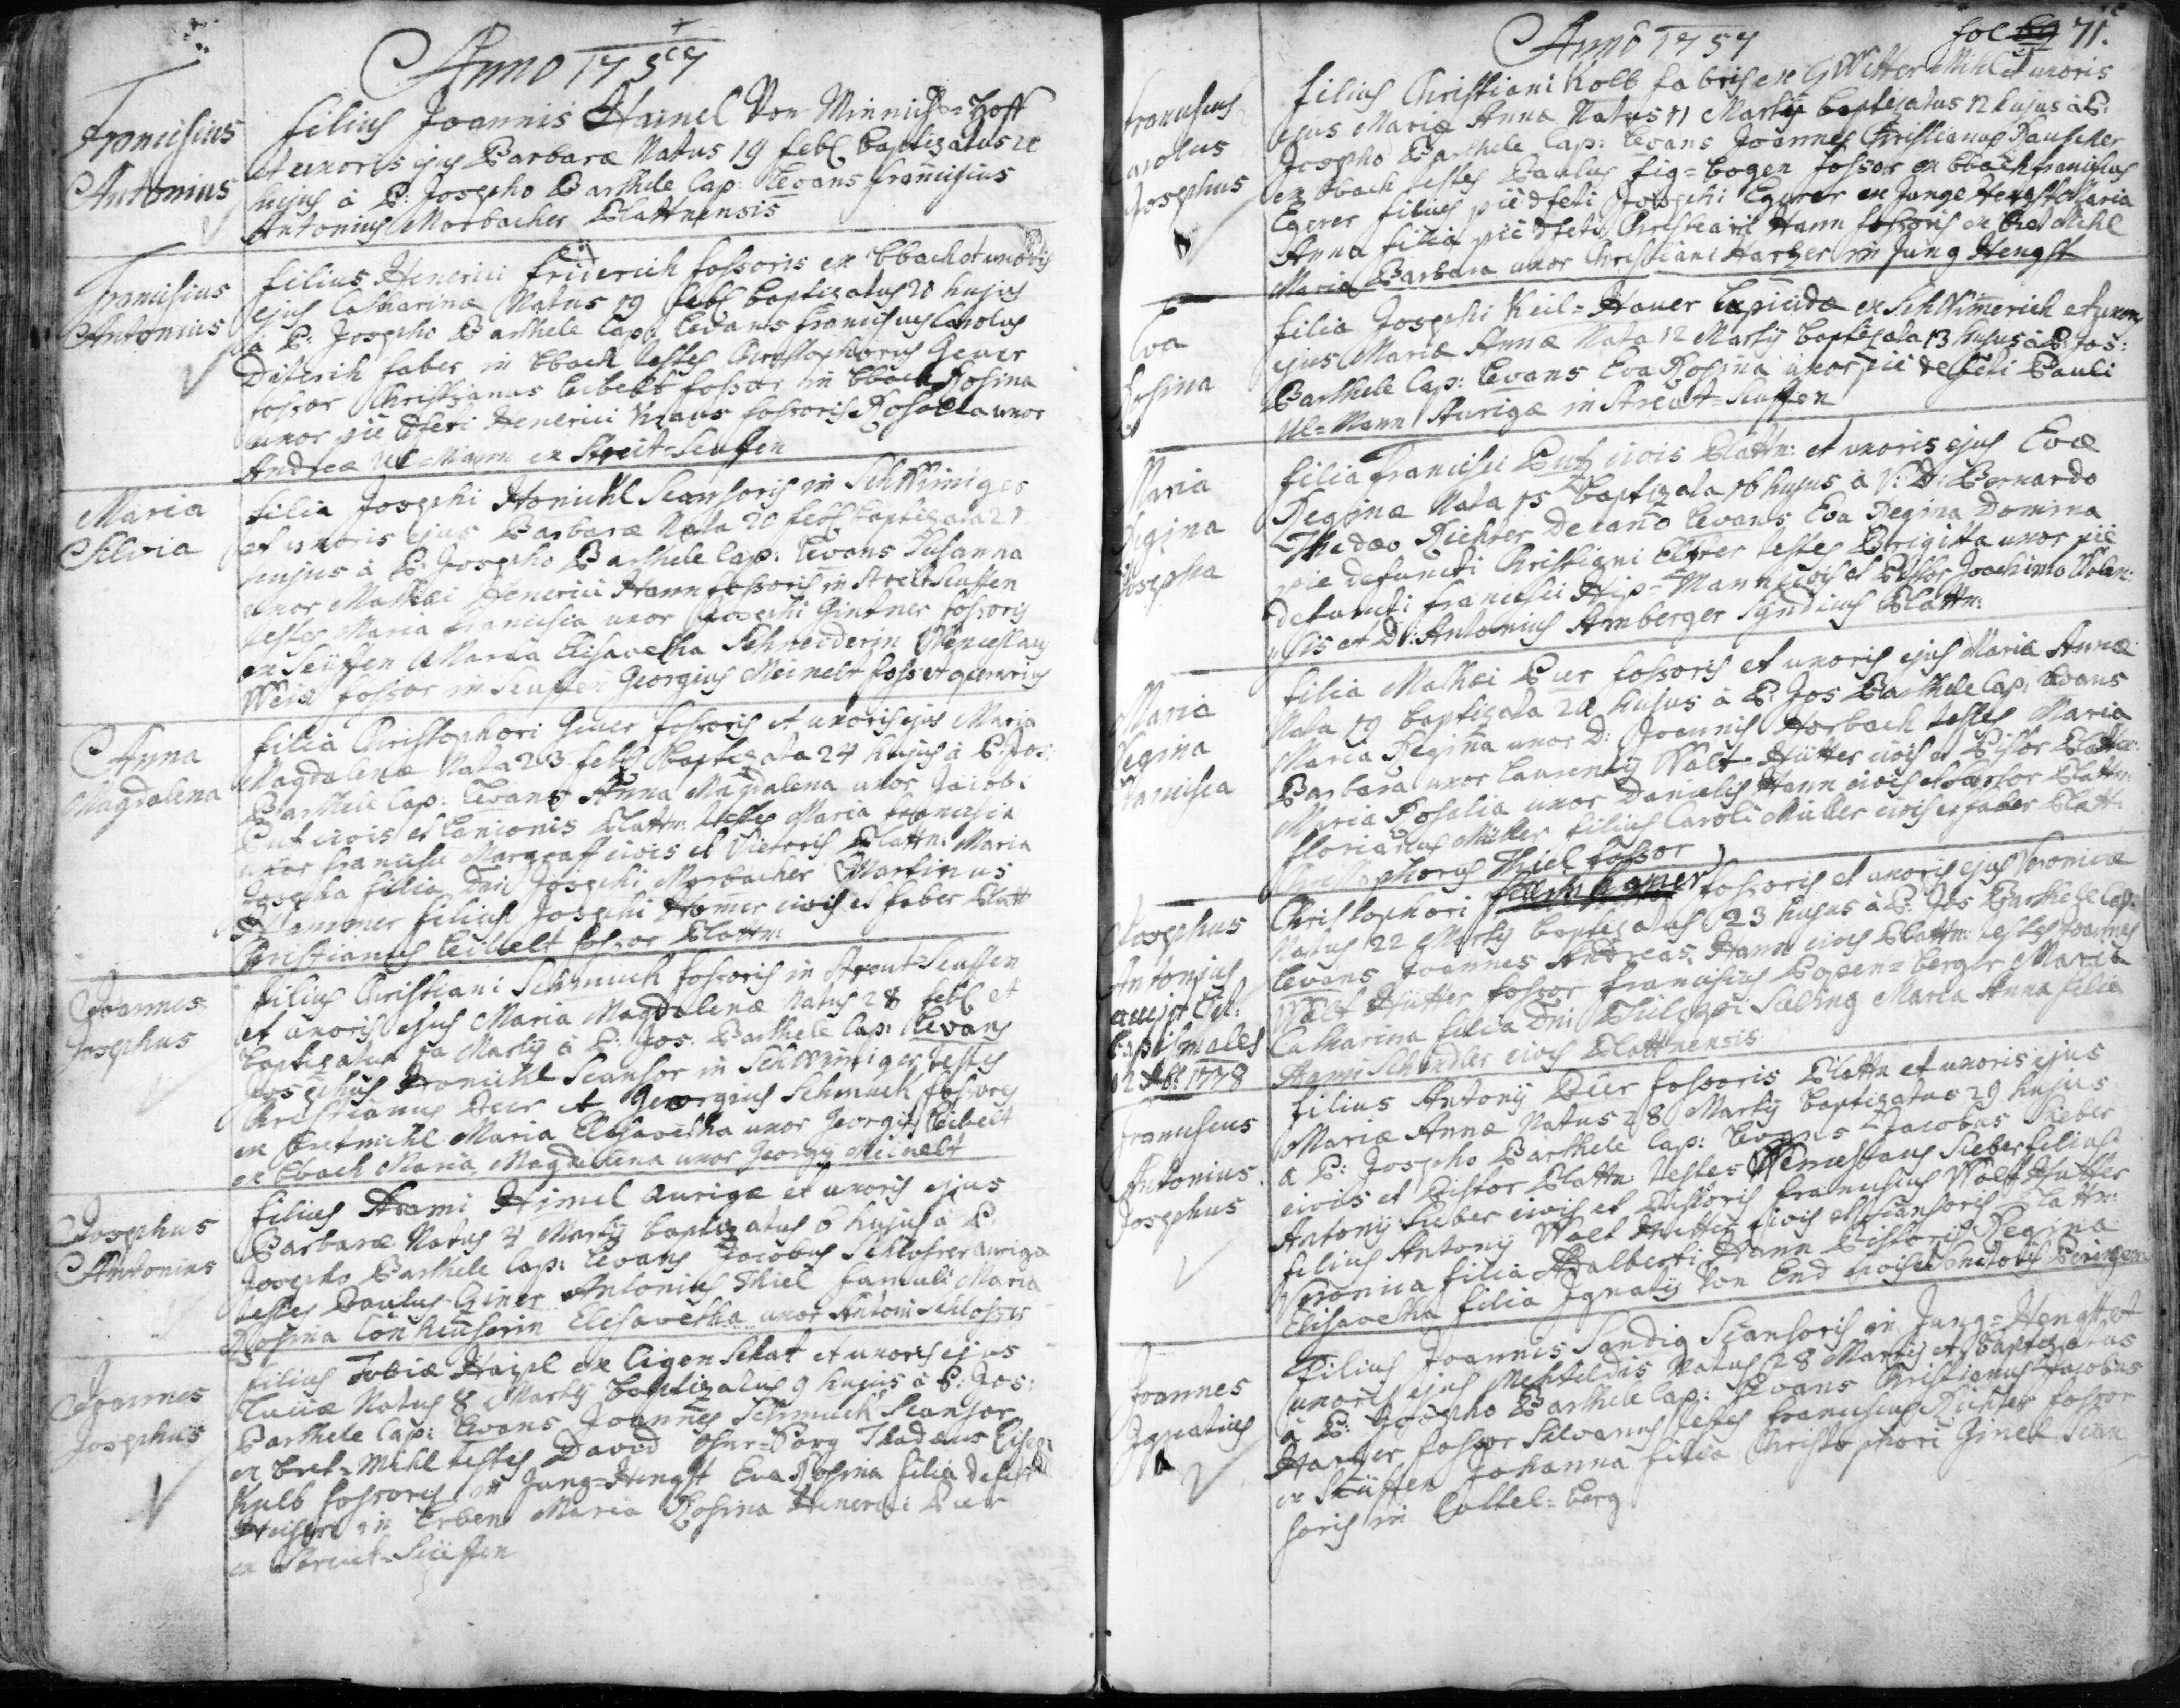 Anno 1757
Franciscus
Antonius
filius Joannis Hainel Von Minnichs=Hoff
et uxoris ejus Barbaræ Natus 19 feb baptizatus 20
hujus à P: Josepho Barthele Cap: Levans Franciscus
Antonius Morbacher Blattnensis
Franciscus
Antonius
filius Henerici friderich fossoris ex bbach et uxoris
ejus Catharinæ Natus 19 feb baptizatus 20 hujus
à P: Josepho Barthele Cap: Levans Franciscus Carolus
Diterich faber in bbach testes Christophorus Geuer
fossor Christianus Leibelt fossor in bbach Rosina
uxor pie dfeti Henerici Kraus fossoris Rosalia uxor
Andreæ Ul=Mann ex Streit=Seuffen
Maria
Silvia
filia Josephi Honichl Scansoris in Schwimiger
et uxoris ejus Barbaræ Nata 20 feb baptizata 21
hujus à P: Josepho Barthele Cap: Levans Susanna
uxor Mathæi Henerici Hann fossoris in Streitseuffen
testes Maria Francisca uxor Josephi Gintner fossoris
ex Seuffen Maria Elisavetha Schneiderin Wenceslaus
fossor in Seuffen Georgius Meinelt foss
Anna
Magdalena
filia Christophori Geuer fossoris et uxoris ejus Maria
Magdalenæ Nata 23 feb baptizata 24 hujus à P: Jos:
Barthele Cap: Levans Anna Magdalena uxor Jacobi
Put civis et Lanionis Blattn: testes Maria Francisca
uxor Francisci Margraff civis et Victoris Blattn: Maria
Josepha filia Dni Josephi Morbacher Martinus
Hammer filius Josephi Hamer civis et faber Blatt
Christianus Leibelt fossor Blattn:
Joannes
Josephus
filius Christiani Schmuck fossoris in Streut=Seuffen
et uxoris ejus Maria Magdalenæ Natus 28 feb et
baptizatus Martij à P: Jos: Barthele Cap: Levans
Josephus Honichl Scansor in Schwimiger testes
Christianus Beer et Georgius Schmuck fossores
ex Bretmihl Maria Elisavetha uxor Georgij Leibelt
ex bbach Maria Magdalena uxor Georgij Meinelt
Josephus
Antonius
filius Adami Himel aurigæ et uxoris ejus
Barbaræ Natus 4 Martij baptizatus 6 hujus à P.
Josepho Barthele Cap: Levans Jacobus Schlosser auriga
testes Paulus Antonius Thiel famuli Maria
Rosina Elisavetha uxor Antoni Schlosser
Joannes
Josephus
filius Tobiæ Haisl ex ligen Schat et uxoris ejus
Luciæ Natus 8 Martij baptizatus 9 hujus à P: Jos:
Barthele Cap: Levans Joannes Schmuck Scansor
ex Bret=Mihl testes David Thadæus
Kulb fossores ex Jung=Hengst Eva Rosina filia
in Erben Maria Rosina Henerici Beer
ex Streut=Seuffen
Anno 1757 fol 69 71.
Franciscus
Carolus
Josephus
filius Christiani Kolb fabris ex GWitter Mihl et uxoris
ejus Mariæ Annæ Natus 11 Martij baptizatus 12 hujus à P:
Josepho Barthele Cap: Levans Joannes Christianus Rauscher
ex bbach testes Paulus fig=bogen fossor ex bbach Franciscus
Egerer filius pie dfeti Josephi Egerer ex Junge Hengst Maria
Anna filia pie dfeti Christiani Hann fossoris ex Bret Mihl
Maria Barbara uxor Christiani Harzer in Jung Hengst
Eva
Rosina
filia Josephi Keil=Hauer Lapicidæ ex Schwimerich et uxoris
ejus Mariæ Annæ Nata 12 Martij baptizata 13 hujus à P: Jos:
Barthele Cap: Levans Eva Rosina uxor pie defeti Pauli
Ul=Mann Aurigæ in Streit=Seuffen
Maria
Regina
Josepha
filia Francisci Put civis Blattn: et uxoris ejus Evæ
Reginæ Nata 15 baptizata 16 hujus à V: D: Bernardo
Thadæo Richter Decano Levans Eva Regina Domina
pie defuncti Christiani Elster testes Brigitta uxor pie
defuncti Francisci Hip=Mann civis et Pistor Joachimo
et D: Antonius Amberger Syndicus Blattn:
Maria
Regina
Francisca
filia Mathæi Beer fossoris et uxoris ejus Maria Annæ
Nata 19 baptizata 20 hujus à P: Jos Barthele Cap: Levans
Maria Regina uxor D: Joannis Horbach testes Maria
Barbara uxor Laurentij Walt=Hütter civis et Pistor Blattn:
Maria Rosalia uxor Danielis Hann civis et Blattn:
Florianus Müller filius Caroli Müller civis et faber Blatt
Christophorus Thiel fossor
Josephus
Antonius
accepit
baptismales
1778
Christophori fossoris et uxoris ejus Veronicæ
Natus 22 Martij baptizatus 23 hujus à P: Jos Barthele Cap:
Levans Joannes Andreas Hann civis Blattn: testes Joannes
Walt Hütter fossor Franciscus Popen=berger Maria
Catharina filia Dni Philippi Seling Maria Anna filia
Schindler civis Blattnensis
Franciscus
Antonius
Josephus
filius Antonij Beer fossoris Blattn et uxoris ejus
Mariæ Annæ Natus 28 Martij baptizatus 29 hujus
à P: Josepho Barthele Cap: Levans Jacobus Sieber
civis et Pistor Blattn testes Wenceslaus Sieber filius
Antonij Sieber civis et Pistoris Franciscus Walt Hütter
filius Antonij Walt Hütter civis et Scansoris Blattn:
Veronica filia Adalberti Hann Pistoris Regina
Elisavetha filia Ignatij Von End civis et
Joannes
Ignatius
filius Joannis Sandig Scansoris in Jung=Hengst et
uxoris ejus Mehteldis Natus 28 Martij et baptizatus
à P: Josepho Barthele Cap: Levans Christianus Jacobus
Harzer fossor Silvanus testes Franciscus Richter fossor
ex Seüffen Johanna filia Christophori Himel Scan
soris in